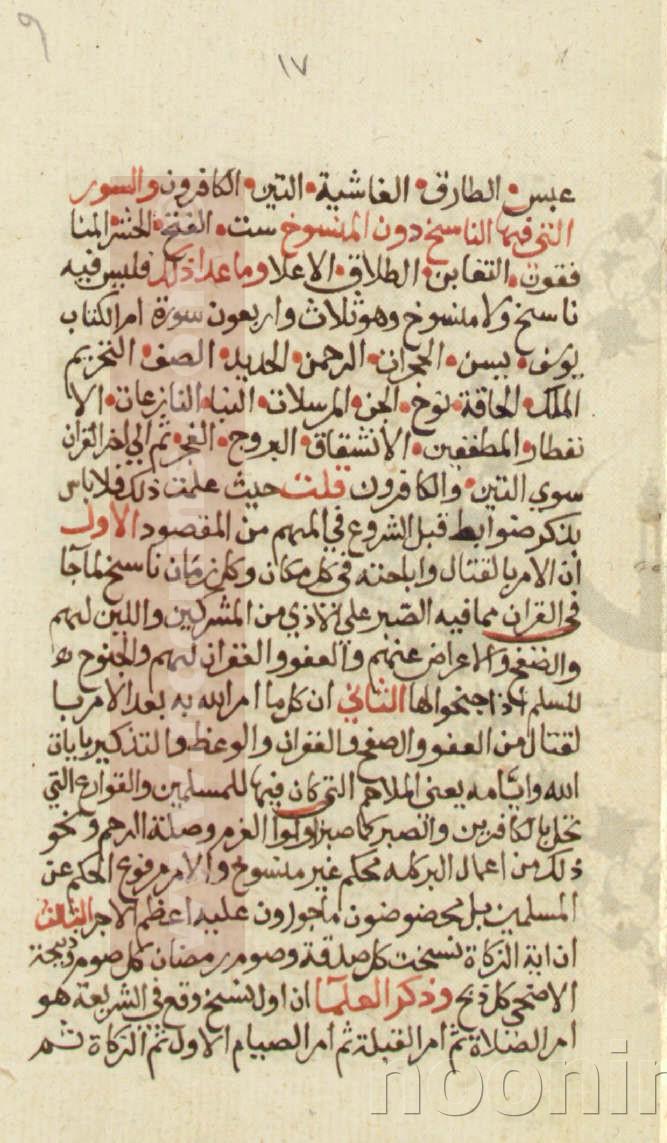 ٩
١٧
عبس الطارق الغاشية التين الكافرون والسور
التى فيها الناسخ دون المنسوخ ست الفتح الحشر المنا
فقون التغابن الطلاق الاعلا وما عدا ذلك فليس فيه
ناسخ ولا منسوخ وهو ثلاث واربعون سورة ام الكتاب
يوسف يس الحجرات الرحمن الحديد الصف التحريم
الملك الحاقة نوح الجن المرسلات النبا النازعات الا
نفطار المطففين الانشقاق البروج الفجر ثم الى اخر القران
سوى التين والكافرون قلت حيث علمت ذلك فلا باس
بذكر ضوابط قبل الشروع في المهم من المقصود الاول
ان الامر بالقتال واباحته في كل مكان وكل زمان ناسخ لما جا
في القران مما فيه الصبر على الاذي من المشركين واللين لهم
والصفح والاعراض عنهم والعفو والغفران لهم والجنوح
للسلم اذا جنحوا لها الثاني ان كل ما امر الله به بعد الامر با
لقتال من العفو والصفح والغفران والوعظ والتذكير بايات
الله وايامه يعنى الملاحم التى كان فيها للمسلمين والقوارع التي
تحل بالكافرين والصبر كما صبر اولوا العزم وصلة الرحم ونحو
ذلك من اعمال البر كله محكم غير منسوخ والامر مرفوع الحكم عن
المسلمين بل محضوضون ماجورون عليه اعظم الاجر الثالث
ان اية الزكاة نسخت كل صدقة وصوم رمضان كل صوم وذبيحة
الاضحى كل ذبح وذكر العلما ان اول نسخ وقع في الشريعة هو
امر الصلاة ثم امر القبلة ثم امر الصيام الاول ثم الزكاة ثم